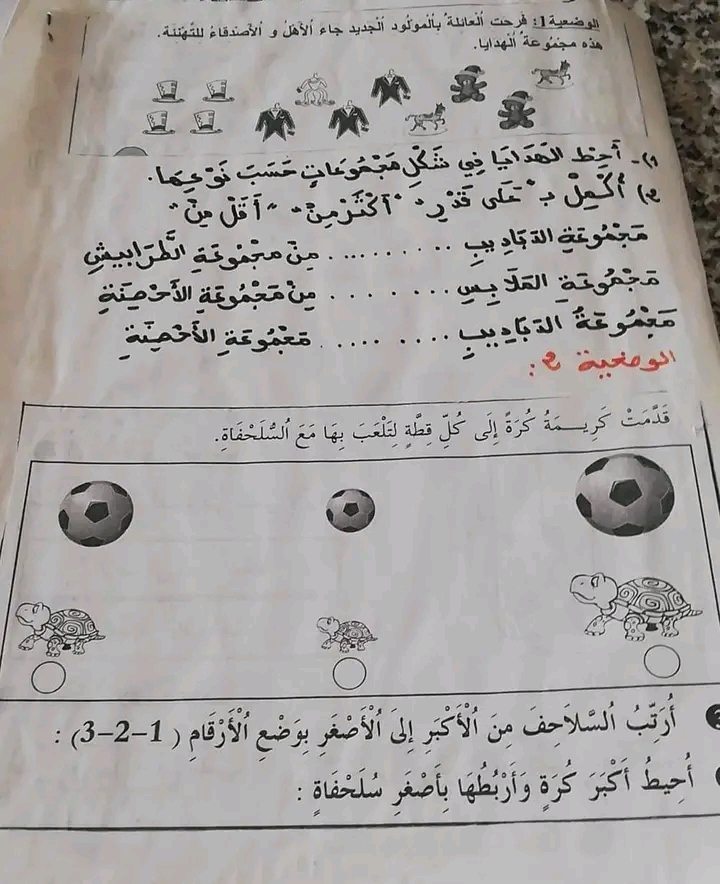 الوضعية 1: فَرحت اْلعائلة بِاْلموْلود اْلجديد جاءَ اْلأهْلُ و اْلأصْدقاءُ للتّهْنئة.
هذه مجْموعة اْلهدايا.
1)- أُحِطِ الهَدَايَا فِي شَكْلِ مَجْمُوعَاتٍ حَسَبَ نَوْعِهَا.
2) أُكْمِلْ بـ "عَلَى قَدْرِ" "أَكْثَرْ مِنْ" "أَقَلْ مِنْ"
مَجْمُوعَةِ الدّبَادِيبِ .......... مِنْ مَجْمُوعَةِ الطَّرَابِيشِ
مَجْمُوعَةِ المَلَابِسِ ........ مِنْ مَجْمُوعَةِ الأَحْصِنَةِ
مَجْمُوعَةُ الدّبَادِيبِ ........ مَجْمُوعَةِ الأَحْصِنَةِ
الوضعية 2:
قَدَّمَتْ كَرِيـــمَةُ كُرَةً إِلَى كُلِّ قِطَّةٍ لِتَلْعَبَ بِهَا مَعَ اُلسُّلَحْفَاةِ.
أُرَتِّبُ اُلسَّلاَحِفَ مِنَ اْلأَكْبَرِ إِلىَ اْلأَصْغَرِ بِوَضْعِ اْلأَرْقَامِ (1-2-3) :
أُحِيطُ أَكْبَرَ كُرَةٍ وَأَرْبُطُهَا بِأَصْغَرِ سُلَحْفَاةٍ :